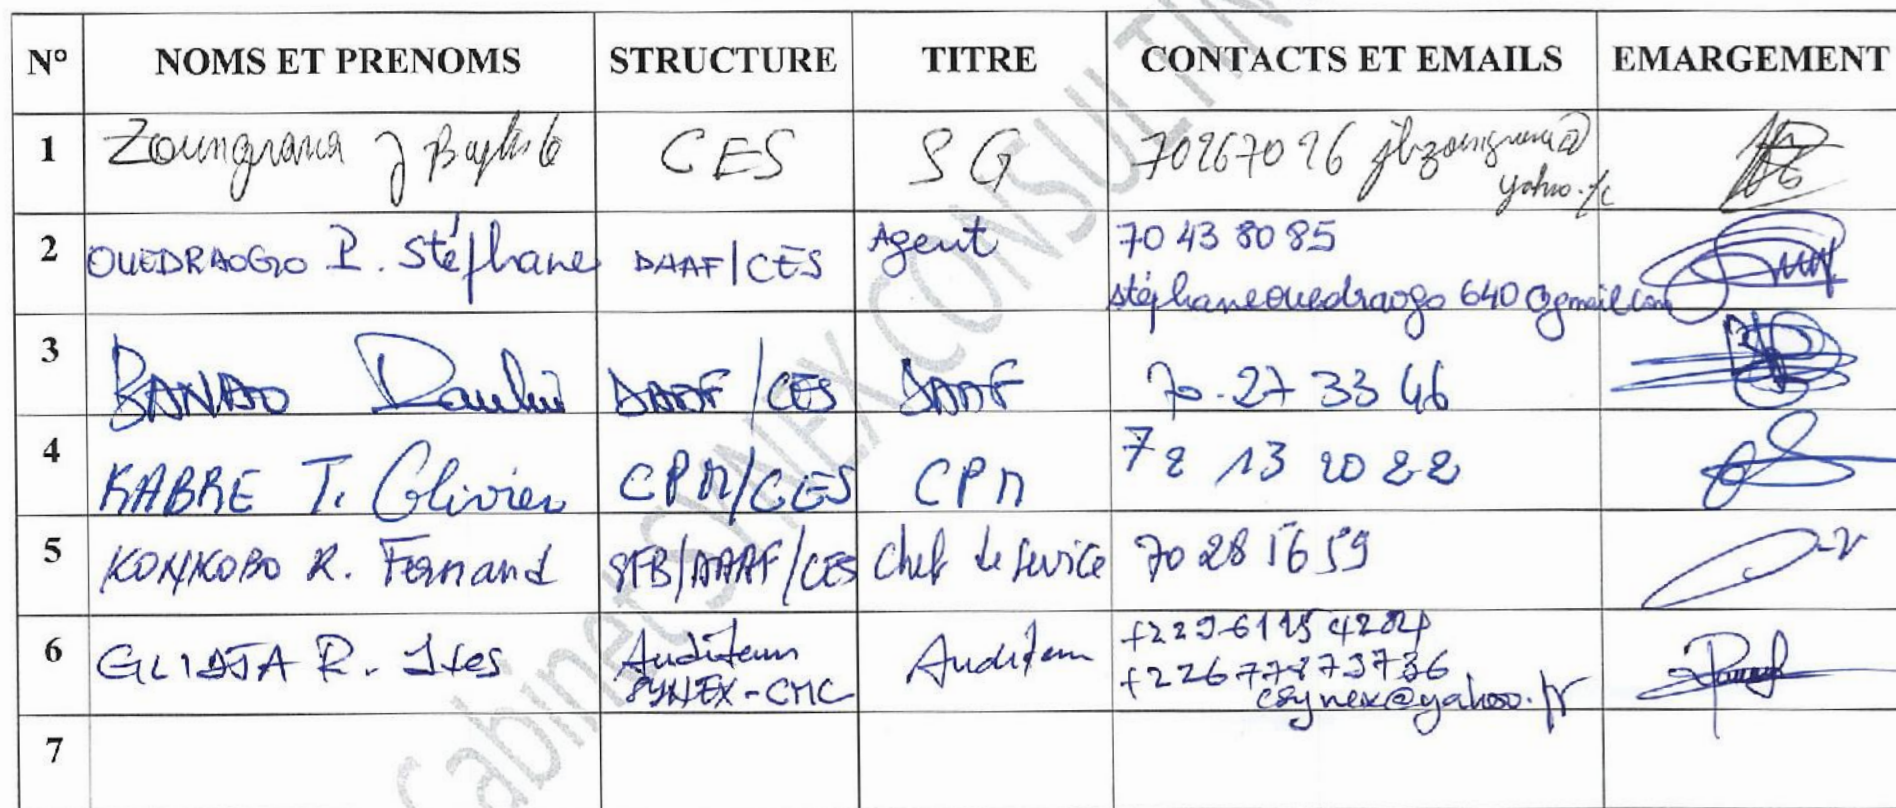 N° NOMS ET PRENOMS STRUCTURE TITRE CONTACTS ET EMAILS EMARGEMENT
1 Zoungrana J Baptiste CES SG 70267026 jbzoungrana@
yahoo.fr
2 OUEDRAOGO P. Stéphane DAAF/CES Agent 70 43 80 85
stéphaneouedraogo640@gmail.com
3 BANAO DAAF/CES DAAF 70.27 33 46
4 KABRE T. Olivier CPM/CES CPM 72 13 20 22
5 KONKOBO R. Fernand SFB/DAAF/CES Chef de Service 70 28 16 59
6 GLIDJA R. Ives Auditeur
SYNEX-CMC Auditeur
+226 77873736
csynex@yahoo.fr
7
Cabinet SYNEX CONSULTIN